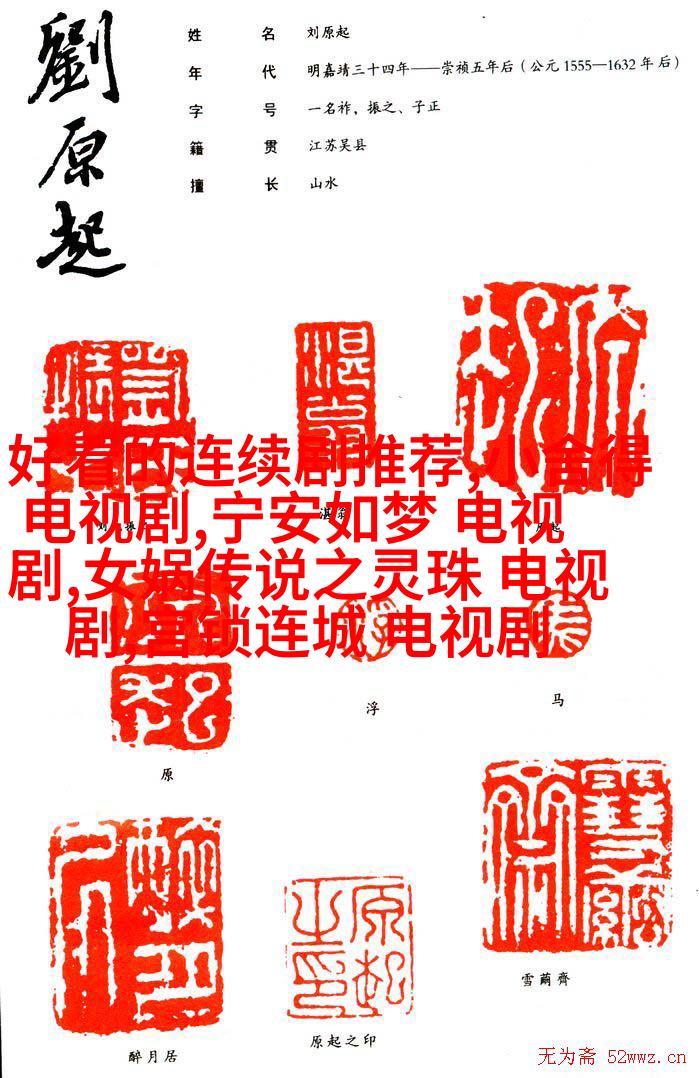 劉原起
姓 名 刘原起
年 代 明嘉靖三十四年——崇祯五年后(公元1555—1632年后)
字 号 一名祚,振之、子正
籍 贯 江苏吴县
擅 长 山水
好看的连续剧推荐,小舍得
电视剧,宁安如梦 电视
剧,女娲传说之灵珠 电视
剧,宫锁连城 电视剧
浮
马
原
原起之印
雪蔄齊
醉月居
原起之印
无为斋 52wwz.cn